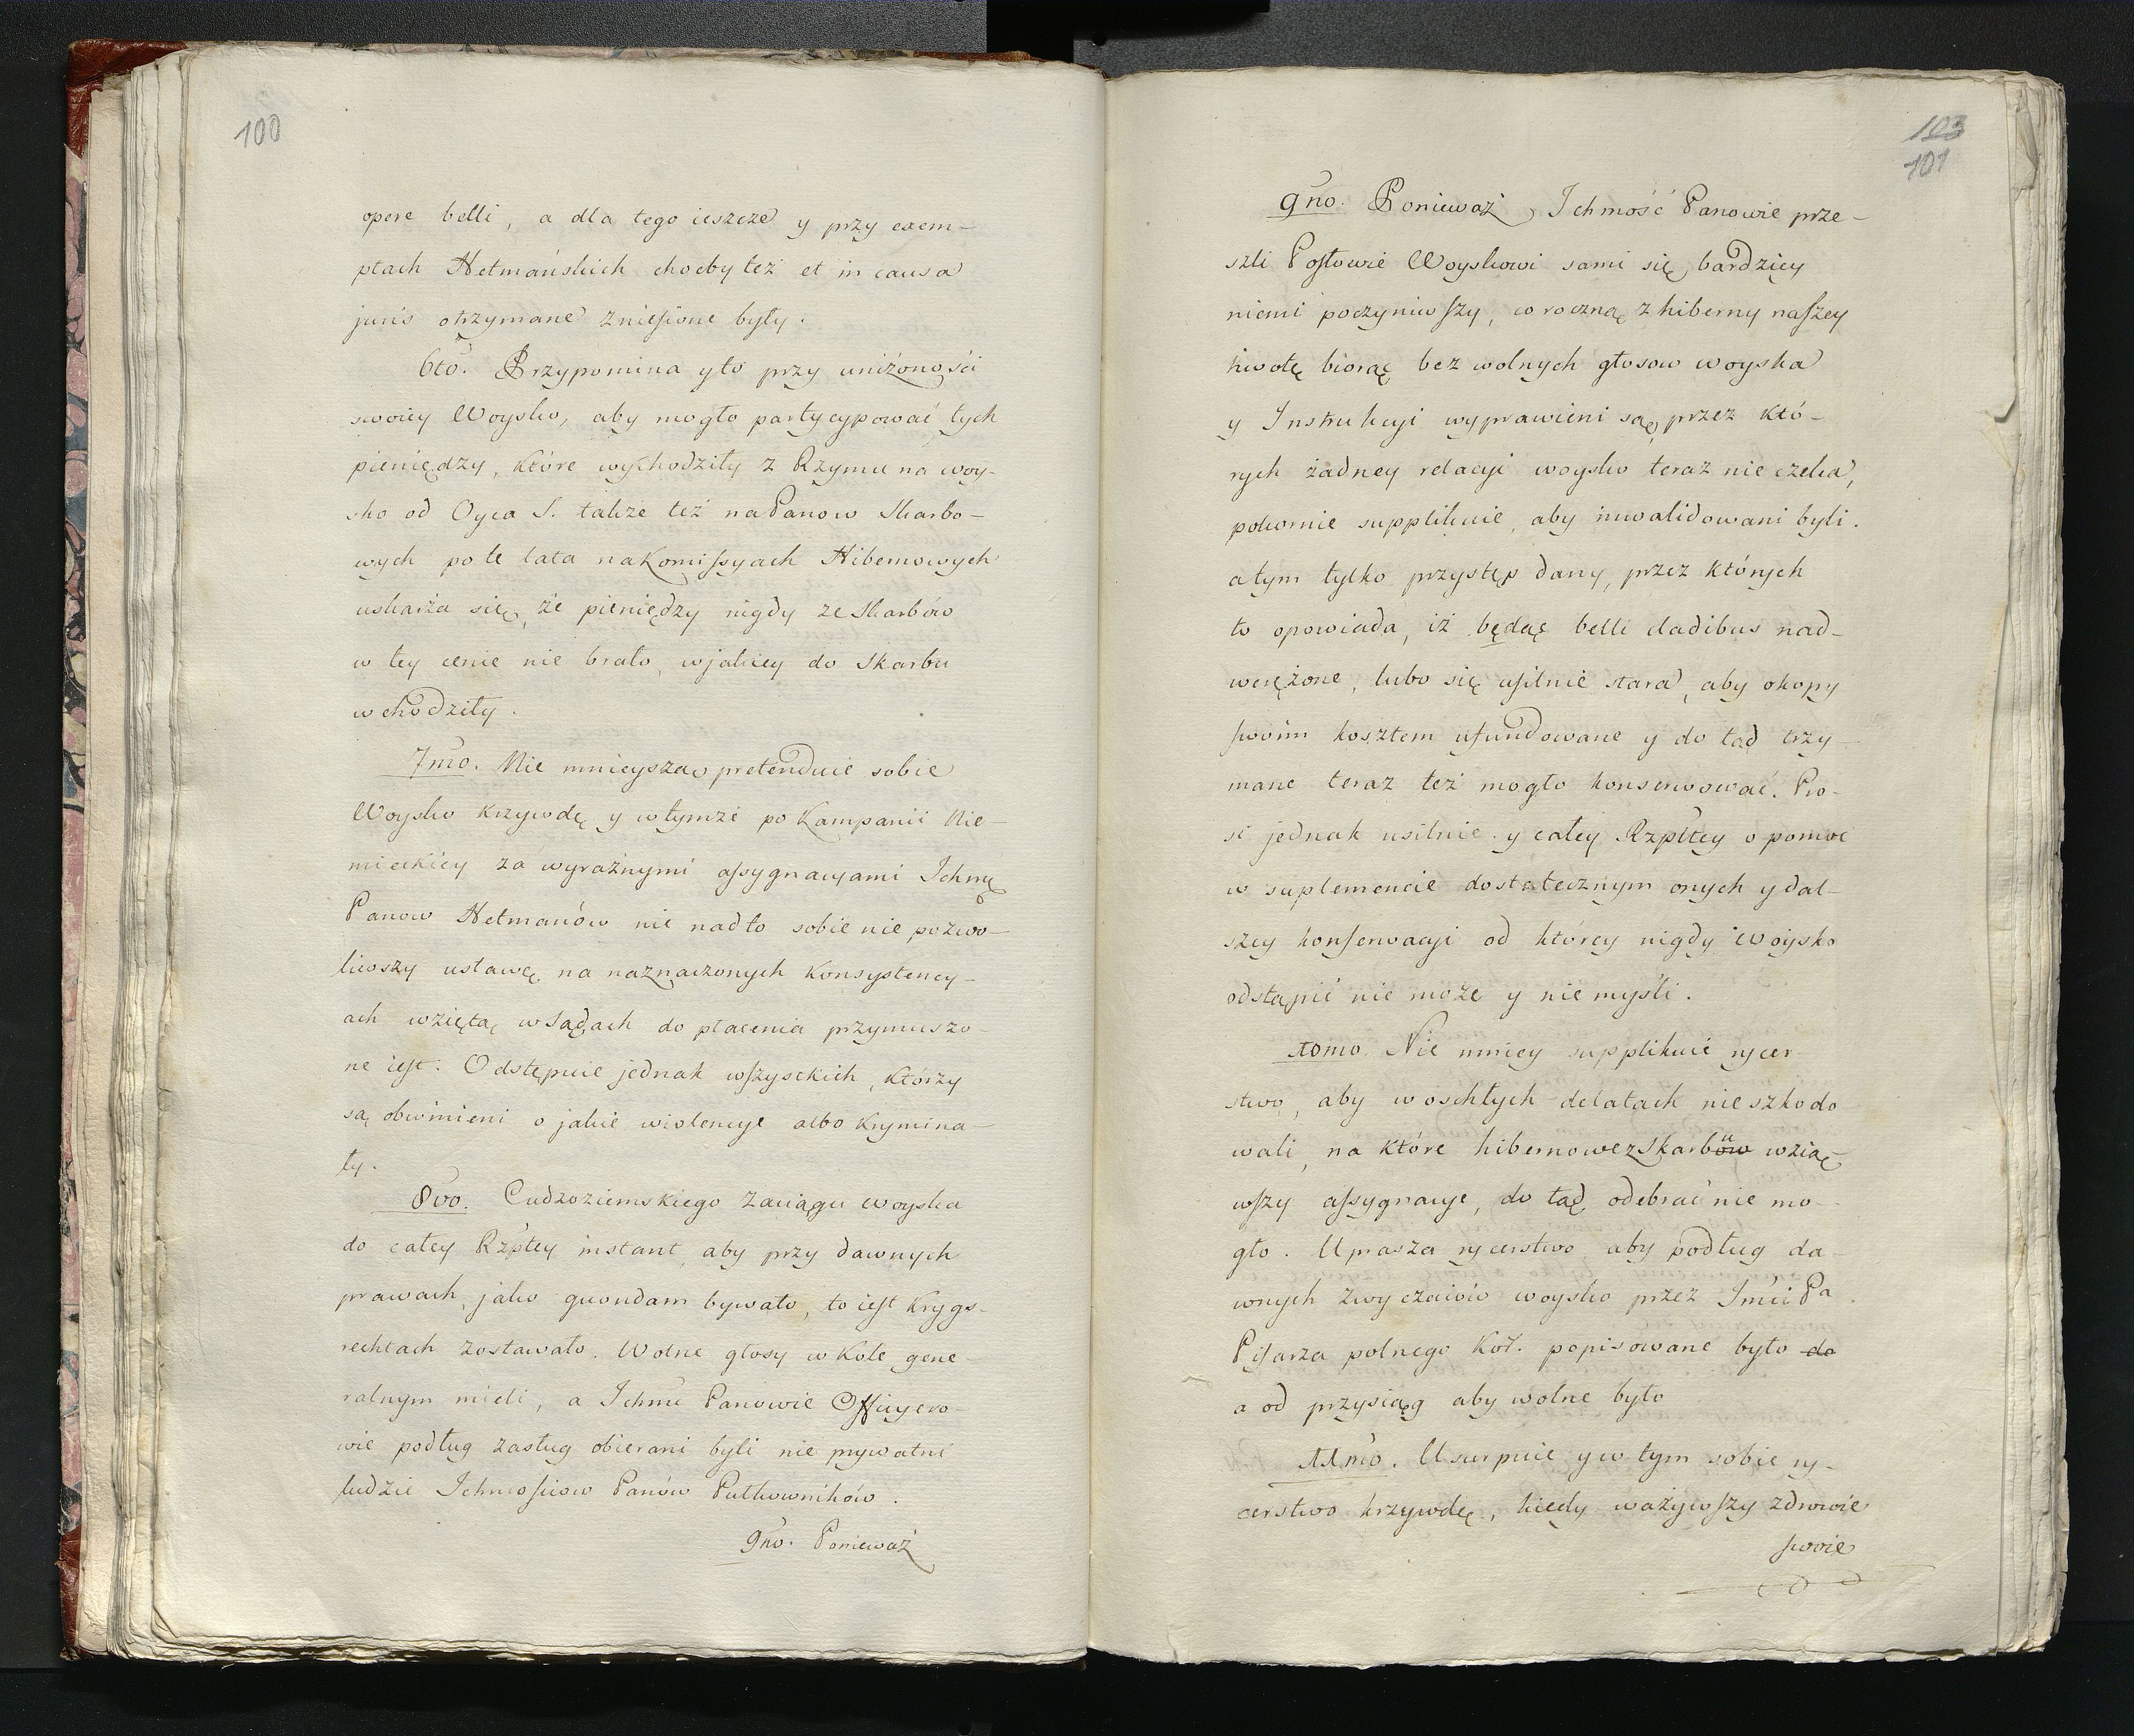 100
opere belli, a dla tego ieszcze y przy exem-
ptach Hetmańskich choćby też et in causa
juris otrzymane zniesione były.
6to. Przypomina y to przy uniżoności
swoiey Woysko, aby mogło partycypować tych
pieniędzy, które wychodziły z Rzymu na woy-
sko od Oyca S. także też na Panow Skarbo-
wych po te lata na Komissyach Hibernowych
uskarża się, że pieniędzy nigdy ze Skarbów
w tey cenie nie brało, w jakiey do Skarbu
wchodziły.
7mo. Nie mnieyszą pretenduie sobie
Woysko krzywdę y w tymże po Kampanii Nie-
mieckiey za wyraźnymi assygnacyami Ichmć
Panow Hetmanów nic nad to sobie nie pozwo-
liwszy ustawę na naznaczonych Konsystency-
ach wziętą w Sądach do płacenia przymuszo-
ne iest. Odstępuie jednak wszystkich, którzy
są obwinieni o jakie wiolencye albo Krymina-
ły.
8vo. Cudzoziemskiego Zaciągu Woyska
do całey Rzptey instant, aby przy dawnych
prawach, jako quondam bywało, to iest Krygs-
rechtach zostawało. Wolne głosy w Kole gene
ralnym mieli, a Ichmć Panowie Officyero-
wie podług zasług obierani byli nie prywatni
ludzie Ichmościow Panów Pułkowników.
9no. Ponieważ
103
101
9no. Ponieważ Ichmość Panowie prze-
szli Posłowie Woyskowi sami się bardziey
niemi poczyniwszy, w roczną z hiberny naszey
kwotę biorąc bez wolnych głosow woyska
y Instrukcyi wyprawieni są, przez któ-
rych żadney relacyi woysko teraz nie czeka,
pokornie supplikuie, aby inwalidowani byli.
a tym tylko przystęp dany, przez których
to opowiada, iż będąc belli cladibus nad-
werężone, lubo się usilnie stara, aby okopy
swoim kosztem ufundowane y do tąd trzy-
mane teraz też mogło konserwować. Pro-
si jednak usilnie y całey Rzpłtey o pomoc
w suplemencie dostatecznym onych y dal-
szey konserwacyi od którey nigdy Woysko
odstąpić nie może y nie myśli.
10mo. Nie mniey supplikuie rycer-
stwo, aby w oschłych delatach nie szkodo
wali, na które hibernowe z Skarbów u wziąw
wszy assygnacye, do tąd odebrać nie mo-
gło. Uprasza rycerstwo, aby podług da-
wnych zwyczaiów woysko przez Imci Pa
Pisarza polnego Kor. popisowane było do
a od przysiąg aby wolne było
11mo. Usurpuie y w tym sobie ry-
cerstwo krzywdę, kiedy ważywszy zdrowie
swoie